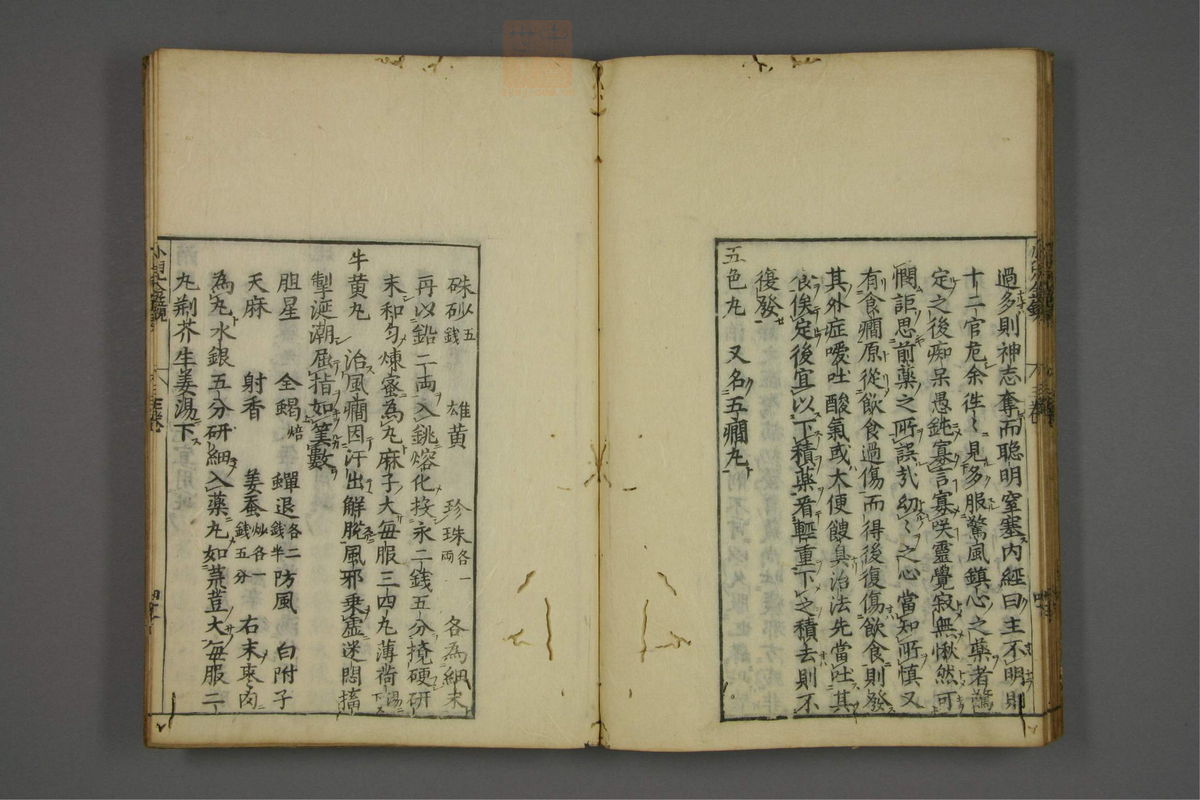 過多則神志奪而聰明窒塞内經曰主不明則
十二官危余徃〻見多服驚風鎮心之藥者驚
定之後痴呆愚鈍寡言寡咲靈覺寂無愀然可
憫詎思前藥之所誤㢤幼〻之心當知所慎又
有食癎原從飲食過傷而得後復傷飲食則發
其外症噯吐酸氣或大便餿臭治法先當吐其
食俟定後宜以下積藥看輕重下之積去則不
復發
五色丸 又名五癎丸
硃砂以五錢 雄黄 珍珠各一両 各為細末
再以鉛二両入銚熔化投永二銭五分攪硬研
末和匀煉蜜為丸麻子大毎服三四丸薄荷湯下
牛黄丸 治風癎因汗出解脱風邪乗虚迷悶搐
掣涎潮屈指如筭數
胆星 全蝎焙 蟬退各二錢半 防風 白附子
天麻 射香 姜蚕炒各一錢五分 右末枣肉
為丸水銀五分研細入藥丸如荒荳大毎服二
丸荆芥生姜湯下